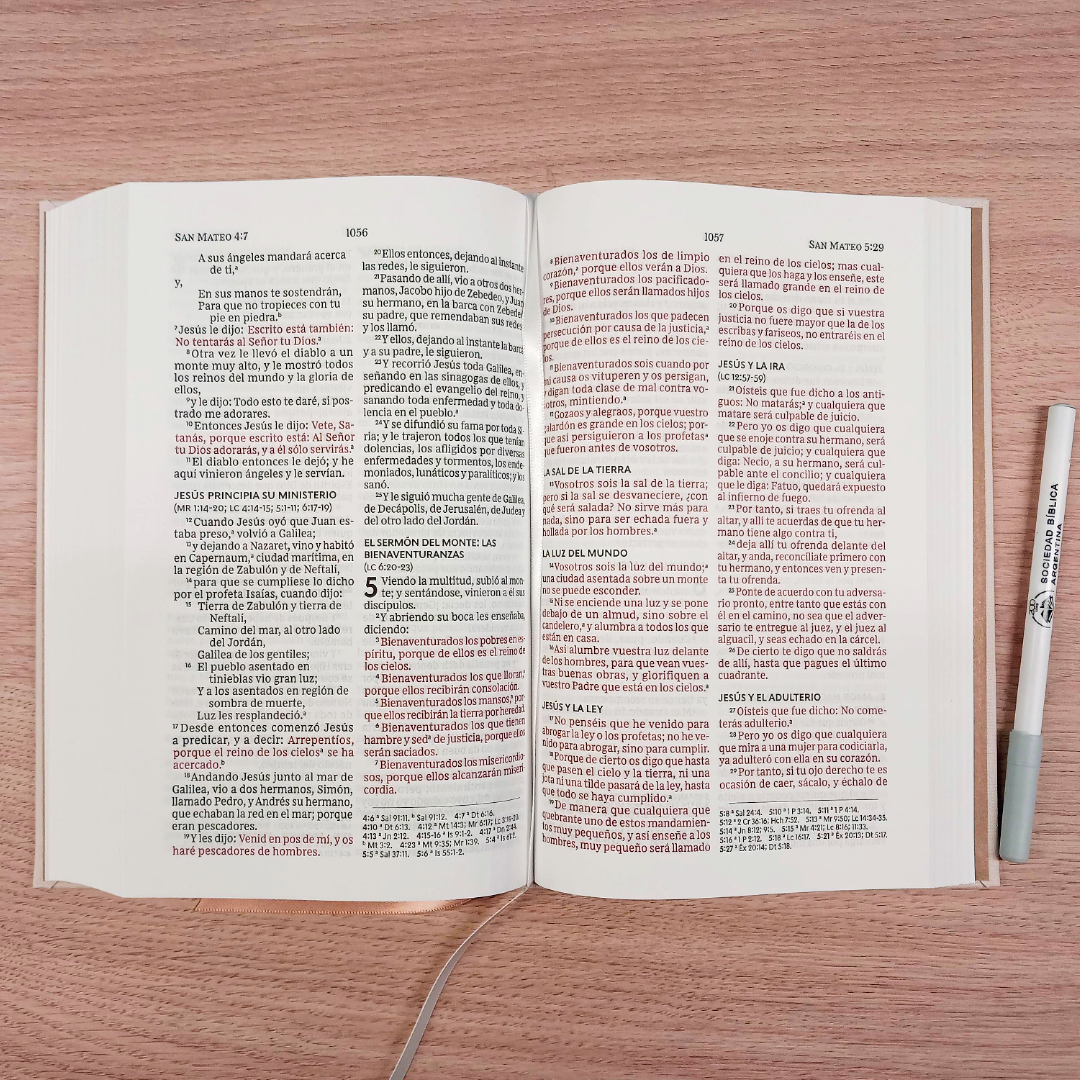 SAN MATEO 4:7
1056
A sus ángeles mandará acerca
de ti,ᵃ
y,
En sus manos te sostendrán,
Para que no tropieces con tu
pie en piedra.ᵇ
⁷Jesús le dijo: Escrito está también:
No tentarás al Señor tu Dios.ᵃ
⁸Otra vez le llevó el diablo a un
monte muy alto, y le mostró todos
los reinos del mundo y la gloria de
ellos,
⁹y le dijo: Todo esto te daré, si pos-
trado me adorares.
¹⁰Entonces Jesús le dijo: Vete, Sa-
tanás, porque escrito está: Al Señor
tu Dios adorarás, y a él sólo servirás.ᵃ
¹¹El diablo entonces le dejó; y he
aquí vinieron ángeles y le servían.
JESÚS PRINCIPIA SU MINISTERIO
(MR 1:14-20; LC 4:14-15; 5:1-11; 6:17-19)
¹²Cuando Jesús oyó que Juan es-
taba preso,ᵃ volvió a Galilea;
¹³y dejando a Nazaret, vino y habitó
en Capernaum,ᵃ ciudad marítima, en
la región de Zabulón y de Neftalí,
¹⁴para que se cumpliese lo dicho
por el profeta Isaías, cuando dijo:
¹⁵ Tierra de Zabulón y tierra de
Neftalí,
Camino del mar, al otro lado
del Jordán,
Galilea de los gentiles;
¹⁶ El pueblo asentado en
tinieblas vio gran luz;
Y a los asentados en región de
sombra de muerte,
Luz les resplandeció.ᵃ
¹⁷Desde entonces comenzó Jesús
a predicar, y a decir: Arrepentíos,
porque el reino de los cielosᵃ se ha
acercado.ᵇ
¹⁸Andando Jesús junto al mar de
Galilea, vio a dos hermanos, Simón,
llamado Pedro, y Andrés su hermano,
que echaban la red en el mar; porque
eran pescadores.
¹⁹Y les dijo: Venid en pos de mí, y os
haré pescadores de hombres.
²⁰Ellos entonces, dejando al instante
las redes, le siguieron.
²¹Pasando de allí, vio a otros dos her-
manos, Jacobo hijo de Zebedeo, y Juan
su hermano, en la barca con Zebedeo
su padre, que remendaban sus redes
y los llamó.
²²Y ellos, dejando al instante la barca
y a su padre, le siguieron.
²³Y recorrió Jesús toda Galilea, en-
señando en las sinagogas de ellos, y
predicando el evangelio del reino, y
sanando toda enfermedad y toda do-
lencia en el pueblo.ᵃ
²⁴Y se difundió su fama por toda Si-
ria; y le trajeron todos los que tenían
dolencias, los afligidos por diversas
enfermedades y tormentos, los ende-
moniados, lunáticos y paralíticos; y los
sanó.
²⁵Y le siguió mucha gente de Galilea,
de Decápolis, de Jerusalén, de Judea y
del otro lado del Jordán.
EL SERMÓN DEL MONTE: LAS
BIENAVENTURANZAS
(LC 6:20-23)
5 Viendo la multitud, subió al mon-
te; y sentándose, vinieron a él sus
discípulos.
²Y abriendo su boca les enseñaba,
diciendo:
³Bienaventurados los pobres en es-
píritu, porque de ellos es el reino de
los cielos.
⁴Bienaventurados los que lloran,ᵃ
porque ellos recibirán consolación.
⁵Bienaventurados los mansos,ᵃ por-
que ellos recibirán la tierra por heredad.
⁶Bienaventurados los que tienen
hambre y sedᵃ de justicia, porque ellos
serán saciados.
⁷Bienaventurados los misericordio-
sos, porque ellos alcanzarán miseri-
cordia.
4:6 ᵃ Sal 91:11. ᵇ Sal 91:12. 4:7 ᵃ Dt 6:16.
4:10 ᵃ Dt 6:13. 4:12 ᵃ Mt 14:3; Mr 6:17; Lc 3:19-20.
4:13 ᵃ Jn 2:12. 4:15-16 ᵃ Is 9:1-2. 4:17 ᵃ Dn 2:44.
ᵇ Mt 3:2. 4:23 ᵃ Mt 9:35; Mr 1:39. 5:4 ᵃ Is 61:2.
5:5 ᵃ Sal 37:11. 5:6 ᵃ Is 55:1-2.
1057
SAN MATEO 5:29
⁸Bienaventurados los de limpio
corazón,ᵃ porque ellos verán a Dios.
⁹Bienaventurados los pacificado-
res, porque ellos serán llamados hijos
de Dios.
¹⁰Bienaventurados los que padecen
persecución por causa de la justicia,ᵃ
porque de ellos es el reino de los cie-
los.
Bienaventurados sois cuando por
mi causa os vituperen y os persigan,
y digan toda clase de mal contra vo-
sotros, mintiendo.ᵃ
Gozaos y alegraos, porque vuestro
galardón es grande en los cielos; por-
que así persiguieron a los profetasᵃ
que fueron antes de vosotros.
LA SAL DE LA TIERRA
¹³Vosotros sois la sal de la tierra;
pero si la sal se desvaneciere, ¿con
qué será salada? No sirve más para
nada, sino para ser echada fuera y
hollada por los hombres.ᵃ
LA LUZ DEL MUNDO
¹⁴Vosotros sois la luz del mundo;ᵃ
una ciudad asentada sobre un monte
no se puede esconder.
¹⁵Ni se enciende una luz y se pone
debajo de un almud, sino sobre el
candelero,ᵃ y alumbra a todos los que
están en casa.
¹⁶Así alumbre vuestra luz delante
de los hombres, para que vean vues-
tras buenas obras, y glorifiquen a
vuestro Padre que está en los cielos.ᵃ
JESÚS Y LA LEY
¹⁷No penséis que he venido para
abrogar la ley o los profetas; no he ve-
nido para abrogar, sino para cumplir.
¹⁸Porque de cierto os digo que hasta
que pasen el cielo y la tierra, ni una
jota ni una tilde pasará de la ley, hasta
que todo se haya cumplido.ᵃ
¹⁹De manera que cualquiera que
quebrante uno de estos mandamien-
tos muy pequeños, y así enseñe a los
hombres, muy pequeño será llamado
en el reino de los cielos; mas cual-
quiera que los haga y los enseñe, este
será llamado grande en el reino de
los cielos.
²⁰Porque os digo que si vuestra
justicia no fuere mayor que la de los
escribas y fariseos, no entraréis en el
reino de los cielos.
JESÚS Y LA IRA
(LC 12:57-59)
²¹Oísteis que fue dicho a los anti-
guos: No matarás;ᵃ y cualquiera que
matare será culpable de juicio.
²²Pero yo os digo que cualquiera
que se enoje contra su hermano, será
culpable de juicio; y cualquiera que
diga: Necio, a su hermano, será cul-
pable ante el concilio; y cualquiera
que le diga: Fatuo, quedará expuesto
al infierno de fuego.
²³Por tanto, si traes tu ofrenda al
altar, y allí te acuerdas de que tu her-
mano tiene algo contra ti,
²⁴deja allí tu ofrenda delante del
altar, y anda, reconcíliate primero con
tu hermano, y entonces ven y presen-
ta tu ofrenda.
²⁵Ponte de acuerdo con tu adversa-
rio pronto, entre tanto que estás con
él en el camino, no sea que el adver-
sario te entregue al juez, y el juez al
alguacil, y seas echado en la cárcel.
²⁶De cierto te digo que no saldrás
de allí, hasta que pagues el último
cuadrante.
JESÚS Y EL ADULTERIO
²⁷Oísteis que fue dicho: No come-
terás adulterio.ᵃ
²⁸Pero yo os digo que cualquiera
que mira a una mujer para codiciarla,
ya adulteró con ella en su corazón.
²⁹Por tanto, si tu ojo derecho te es
ocasión de caer, sácalo, y échalo de
5:8 ᵃ Sal 24:4. 5:10 ᵃ 1 P 3:14. 5:11 ᵃ 1 P 4:14.
5:12 ᵃ 2 Cr 36:16; Hch 7:52. 5:13 ᵃ Mr 9:50; Lc 14:34-35.
5:14 ᵃ Jn 8:12; 9:5. 5:15 ᵃ Mr 4:21; Lc 8:16; 11:33.
5:16 ᵃ 1 P 2:12. 5:18 ᵃ Lc 16:17. 5:21 ᵃ Éx 20:13; Dt 5:17.
5:27 ᵃ Éx 20:14; Dt 5:18.
SOCIEDAD BÍBLICA
ARGENTINA